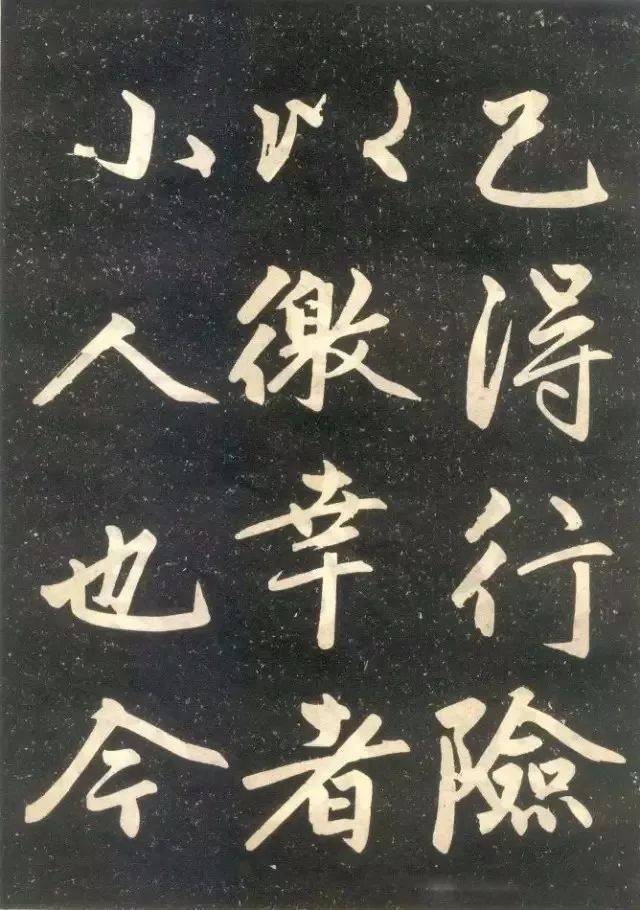 已得行險
以徼幸者
小人也今